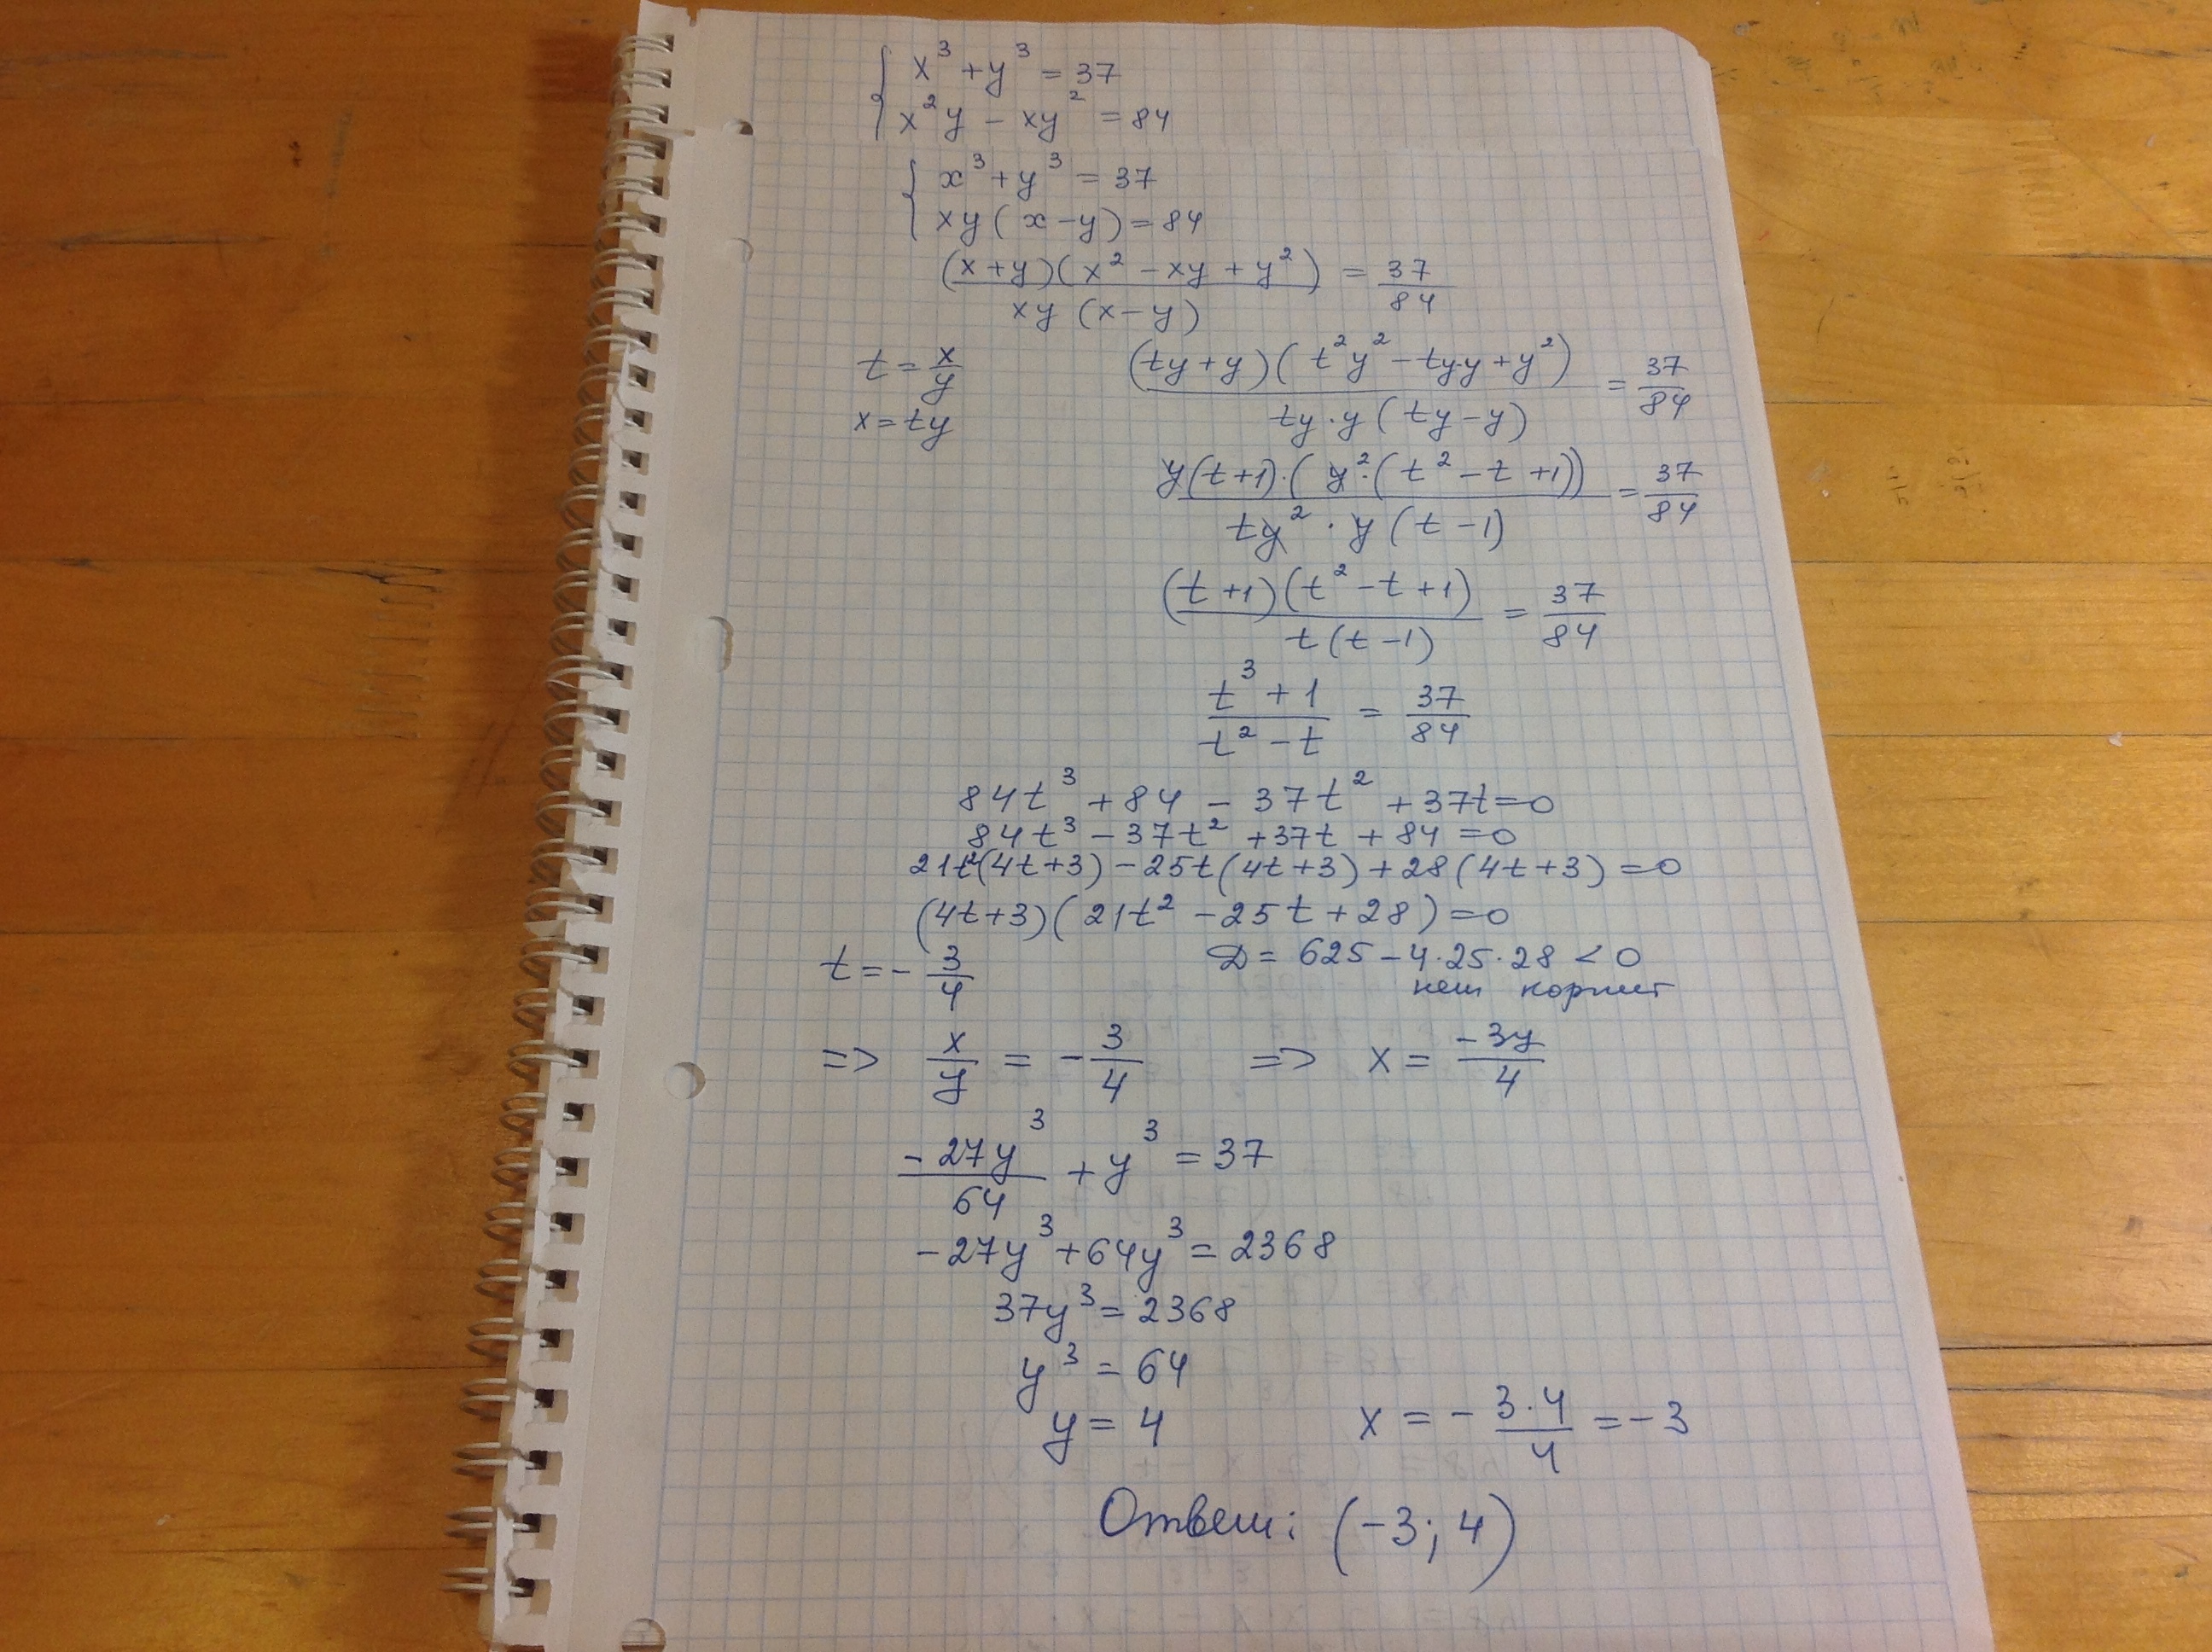 x³ + y³ = 37
x²y - xy² = 84
x³ + y³ = 37
xy(x - y) = 84
(x+y)(x² - xy + y²) / xy(x-y) = 37/84
t = x/y
x = ty
(ty+y)(t²y² - ty·y + y²) / ty·y(ty-y) = 37/84
y(t+1)·(y²·(t² - t + 1)) / ty²·y(t-1) = 37/84
(t+1)(t² - t + 1) / t(t-1) = 37/84
t³ + 1 / t² - t = 37/84
84t³ + 84 - 37t² + 37t = 0
84t³ - 37t² + 37t + 84 = 0
21t²(4t+3) - 25t(4t+3) + 28(4t+3) = 0
(4t+3)(21t² - 25t + 28) = 0
t = -3/4
D = 625 - 4·25·28 < 0
нет корней
=> x/y = -3/4 => x = -3y/4
-27y³/64 + y³ = 37
-27y³ + 64y³ = 2368
37y³ = 2368
y³ = 64
y = 4 x = -3·4/4 = -3
Ответ: (-3; 4)